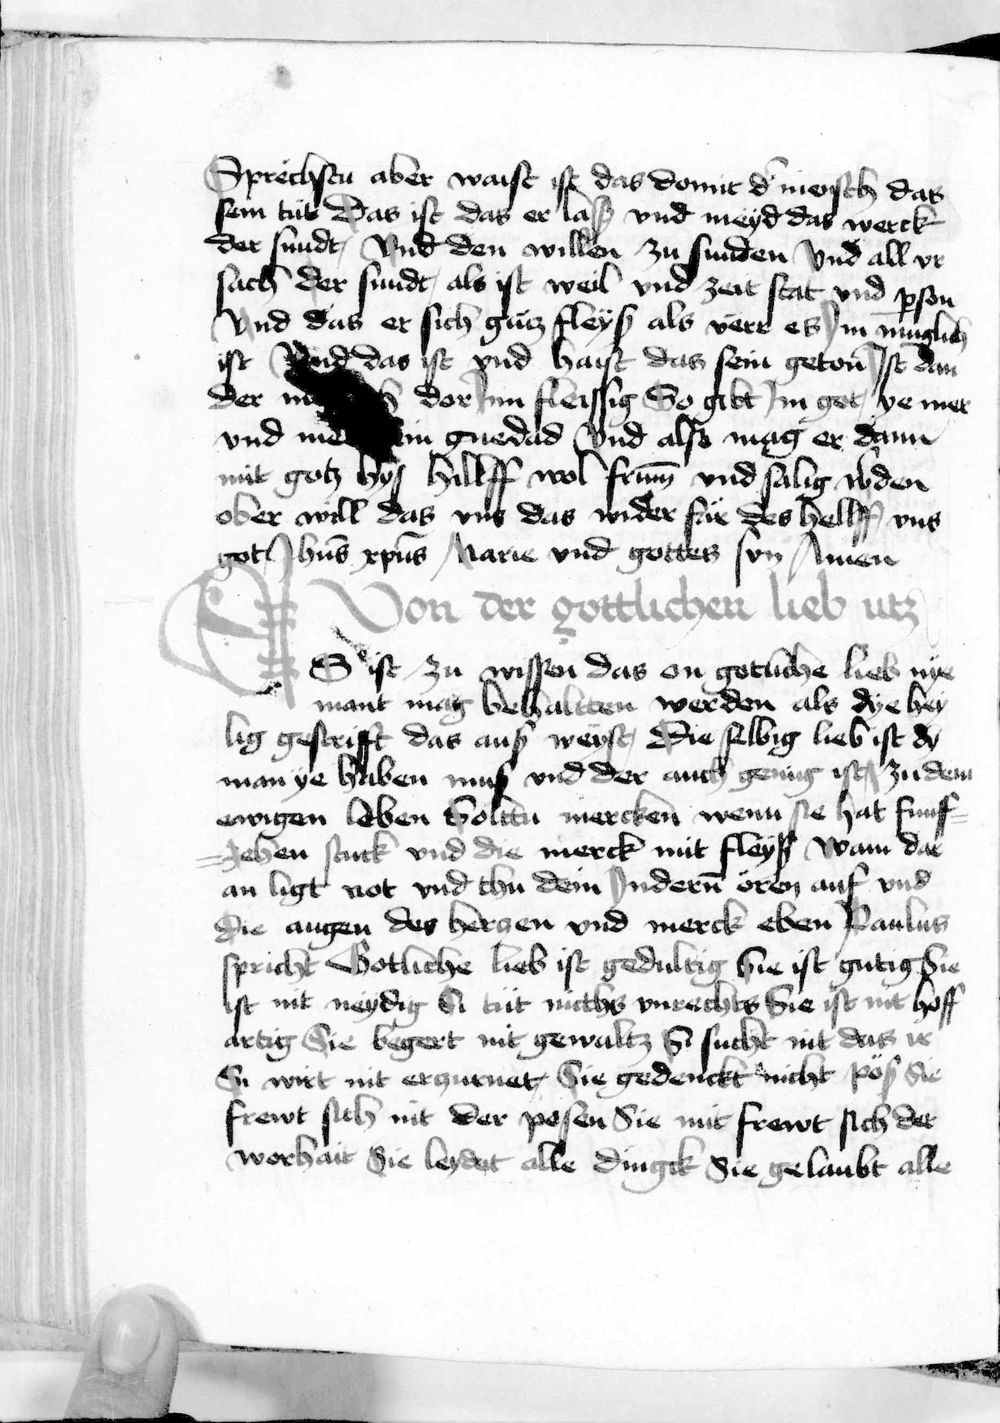 Sprechstu aber waist ist das domit d' mensch das
sein tut Das ist das er laß vnd meyd das werck
der sundt Vnd den willen zu sunden Vnd all vr
sach der sundt als ist weil vnd zeit stat vnd pson
Vnd das er sich gutz fleyß als verr es Im muglich
ist Vnd das ist vnd haist das sein geton Ist dan
der dor Inn fleissig So gibt Im got ye mer
vnd guedad Vnd also mag er dann
mit gotz hilff wol frum vnd salig wden
ober will das vns das wider far des hellff vns
got Jhus xpus Marie vnd gottes sun Amen
Von der gottlichen lieb utz
Es ist zu wissen das on gotliche lieb nye
mant mag behaltten werden als dye hey
lig gestrifft das auß weyst Die selbig lieb ist dy
man ye haben muß vnd der auch genug ist zu dem
ewigen leben Solttu mercken wenn sie hat funff=
=zehen stuck vnd die merck mit fleyß Wann dar
an ligt not vnd thu dein Indern oren auf vnd
die augen des herzen vnd merck eben Paulus
spricht Gotliche lieb ist gedultig Sie ist gutig Sie
ist nit neydig Si tut nichts vnrechts Sie ist nit hoff
artig Sie begert nit gewaltz Si sucht nit das ir
Si wirt nit erzurnet Sie gedenckt nicht pöß Sie
frewt sich nit der posen Sie mit frewt sich der
worhait Sie leydet alle dingk Sie gelaubt alle